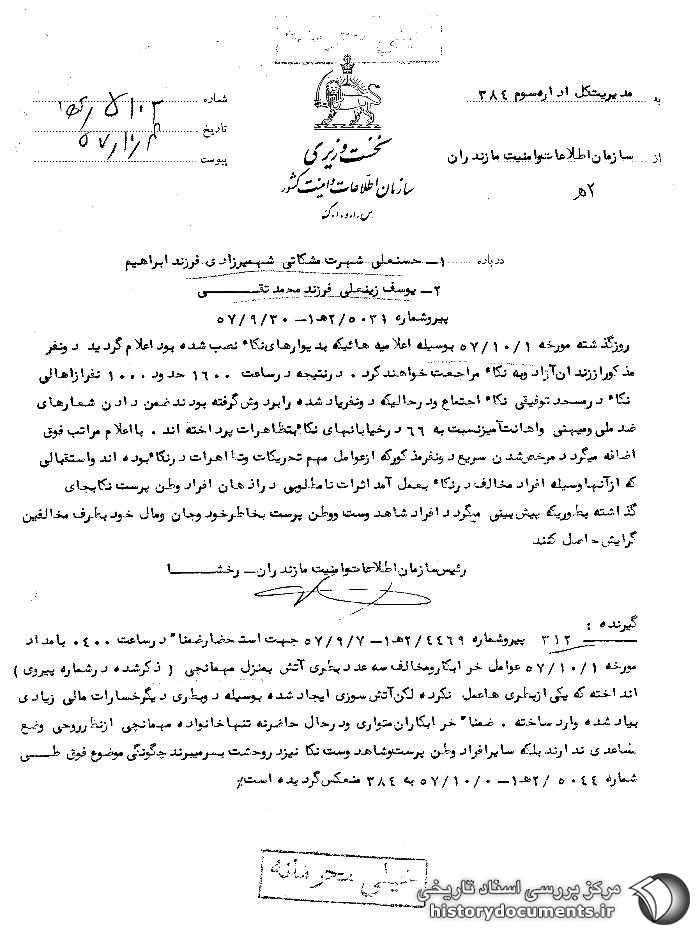 خیلی محرمانه
به مدیریت کل اداره سوم ۳۸۴
از سازمان اطلاعات و امنیت مازندران
۲ ه‍
نخست وزیری
سازمان اطلاعات و امنیت کشور
س.ا.و.ا.ک
شماره
تاریخ
پیوست
درباره ۱ـ حسنعلی شهرت مشکاتی شهمیرزادی فرزند ابراهیم
۲ـ یوسف زینعلی فرزند محمدتقی
پیرو شماره ۲/۵۰۳۱ه‍۱ـ ۵۷/۹/۳۰
روزگذشته مورخه ۵۷/۱۰/۱ بوسیله اعلامیه هائیکه بدیوارهای نکاء نصب شده بود اعلام گردید دونفر
مذکور اززندان آزاد وبه نکاء مراجعت خواهند کرد . درنتیجه درساعت ۱۶۰۰ حدود ۱۰۰۰ نفرازاهالی
نکاء درمسجد توفیقی نکاء اجتماع ودرحالیکه دونفریاد شده رابردوش گرفته بودند ضمن دادن شعارهای
ضد ملی ومیهنی واهانت آمیزنسبت به ۶۶ درخیابانهای نکاء بتظاهرات پرداخته اند . بااعلام مراتب فوق
اضافه میگردد مرخص شدن سریع دونفرمذکورکه ازعوامل مهم تحریکات وتظاهرات درنکاء بوده اند واستقبالی
که ازآنها وسیله افراد مخالف درنکاء بعمل آمد اثرات نامطلوبی دراذهان افراد وطن پرست نکا بجای
گذاشته بطوریکه پیش بینی میگردد افراد شاهدوست ووطن پرست بخاطرخود وجان ومال خود بطرف مخالفین
گرایش حاصل کنند
رئیس سازمان اطلاعات وامنیت مازندران ـ رخشا
گیرنده :
۳۱۲ پیرو شماره ۲/۴۴۶۹ه‍۱ـ ۵۷/۹/۷ جهت استحضار ضمناً درساعت ۰۴۰۰ بامداد
مورخه ۵۷/۱۰/۱ عوامل خرابکارومخالف سه عدد بطری آتش بمنزل میهمانچی ( ذکرشده درشماره پیروی )
انداخته که یکی ازبطری هاعمل نکرده لکن آتش سوزی ایجاد شده بوسیله دوبطری دیگرخسارات مالی زیادی
بیاد شده وارد ساخته . ضمناً خرابکاران متواری ودرحال حاضرنه تنهاخانواده میهمانچی ازنظرروحی وضع
مساعدی ندارند بلکه سایرافراد وطن پرست وشاهدوست نکا نیزدروحشت بسرمیبرند چگونگی موضوع فوق طی
شماره ۲/۵۰۴۴ه‍۱ـ ۵۷/۱۰/۰ به ۳۸۴ منعکس گردیده است٪
خیلی محرمانه
مرکز بررسی اسناد تاریخی
historydocuments.ir